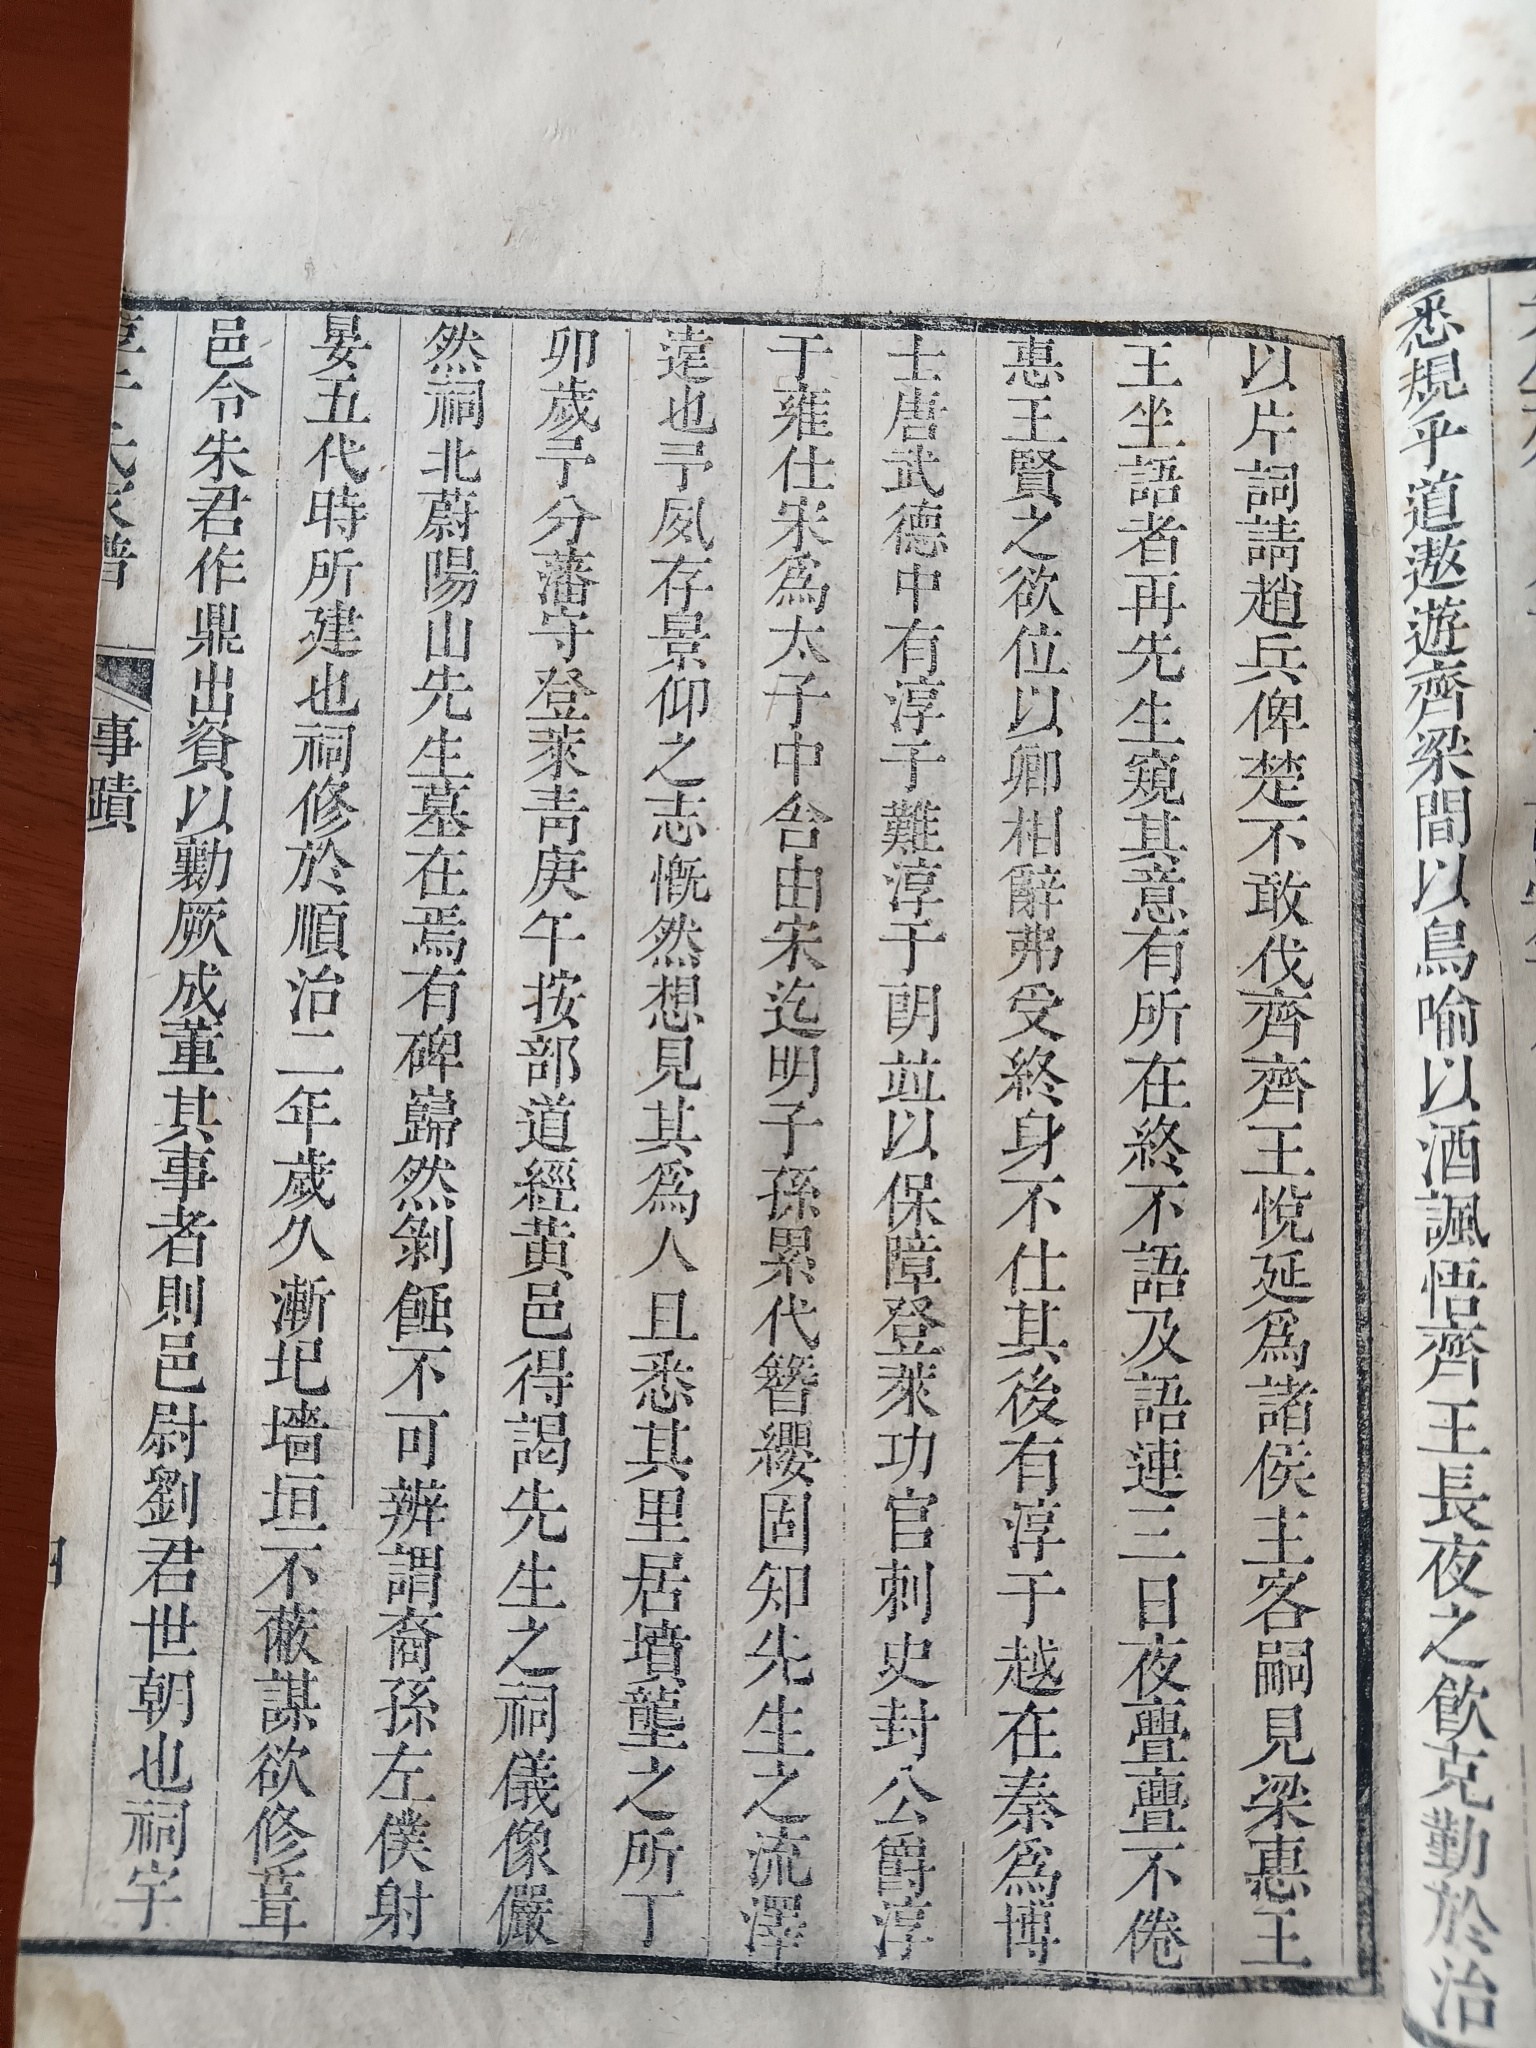 悉規乎道遨遊齊梁間以鳥喻以酒諷悟齊王長夜之飮克勤於治
以片詞請趙兵俾楚不敢伐齊齊王悅延爲諸侯主客嗣見梁惠王
王坐語者再先生窺其意有所在終不語及語連三日夜亹亹不倦
惠王賢之欲位以卿相辭弗受終身不仕其後有淳于越在秦爲博
士唐武德中有淳于難淳于朗並以保障登萊功官刺史封公爵淳
于雍仕宋爲太子中舍由宋迄明子孫累代簪纓固知先生之流澤
遠也予夙存景仰之志慨然想見其爲人且悉其里居墳壟之所丁
卯歲予分藩守登萊靑庚午按部道經黃邑得謁先生之祠儀像儼
然祠北蔚陽山先生墓在焉有碑巋然剝蝕不可辨謂裔孫左僕射
晏五代時所建也祠修於順治二年歲久漸圯墻垣不蔽謀欲修葺
邑令朱君作鼎出資以勷厥成董其事者則邑尉劉君世朝也祠宇
事蹟